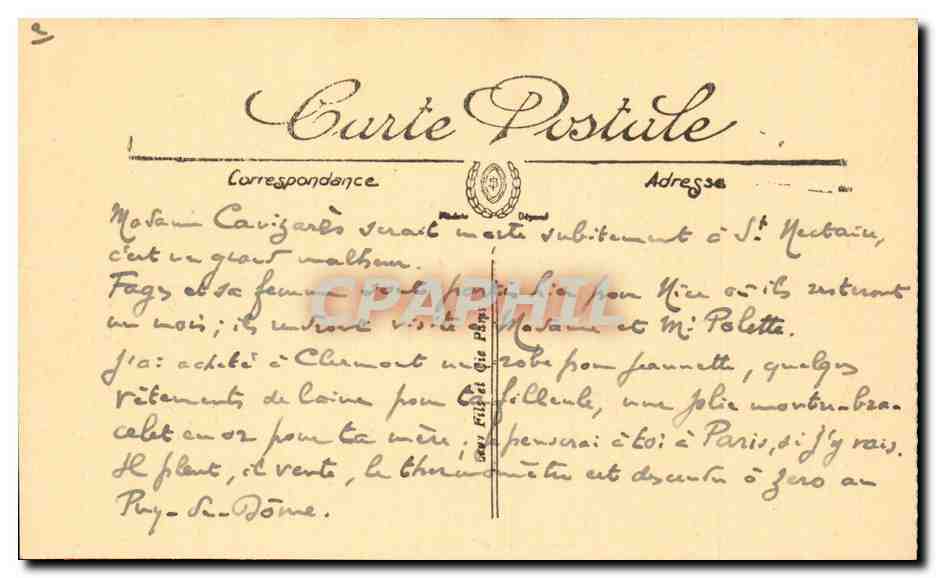 2
Carte Postale
Correspondance
Adresse
Modèle Déposé
Madame Cavizarès serait morte subitement à St Nectaire,
c'est un grand malheur.
Fages et sa femme sont partis hier pour Nice où ils resteront
un mois; ils rendront visite à Madame et Mr Polette.
J'ai acheté à Clermont une robe pour Jeannette, quelques
vêtements de laine pour ta filleule, une jolie montre-bra-
celet en or pour ta mère; je penserai à toi à Paris, si j'y vais.
Il pleut, il vente, le thermomètre est descendu à zéro au
Puy-de-Dôme.
Fils et Cie Paris
CPAPHIL